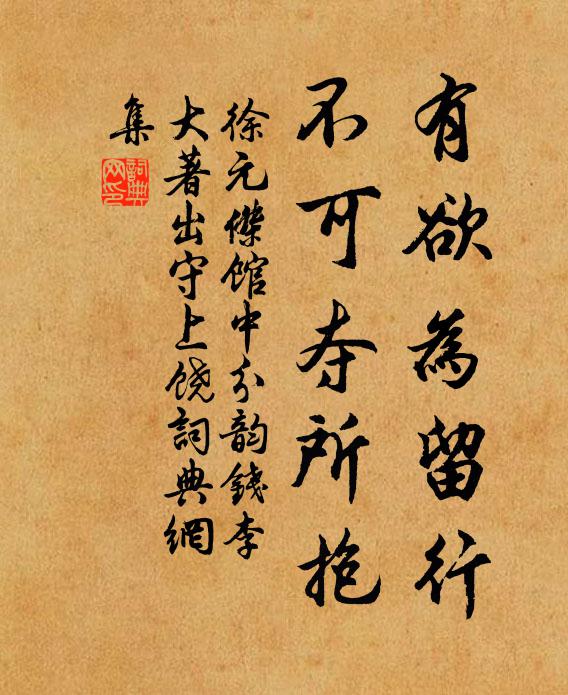 有欲為留行
不可夺所抱
徐元傑馆中分韵錢李
大著出守上饶詞典網
集
詞典網印